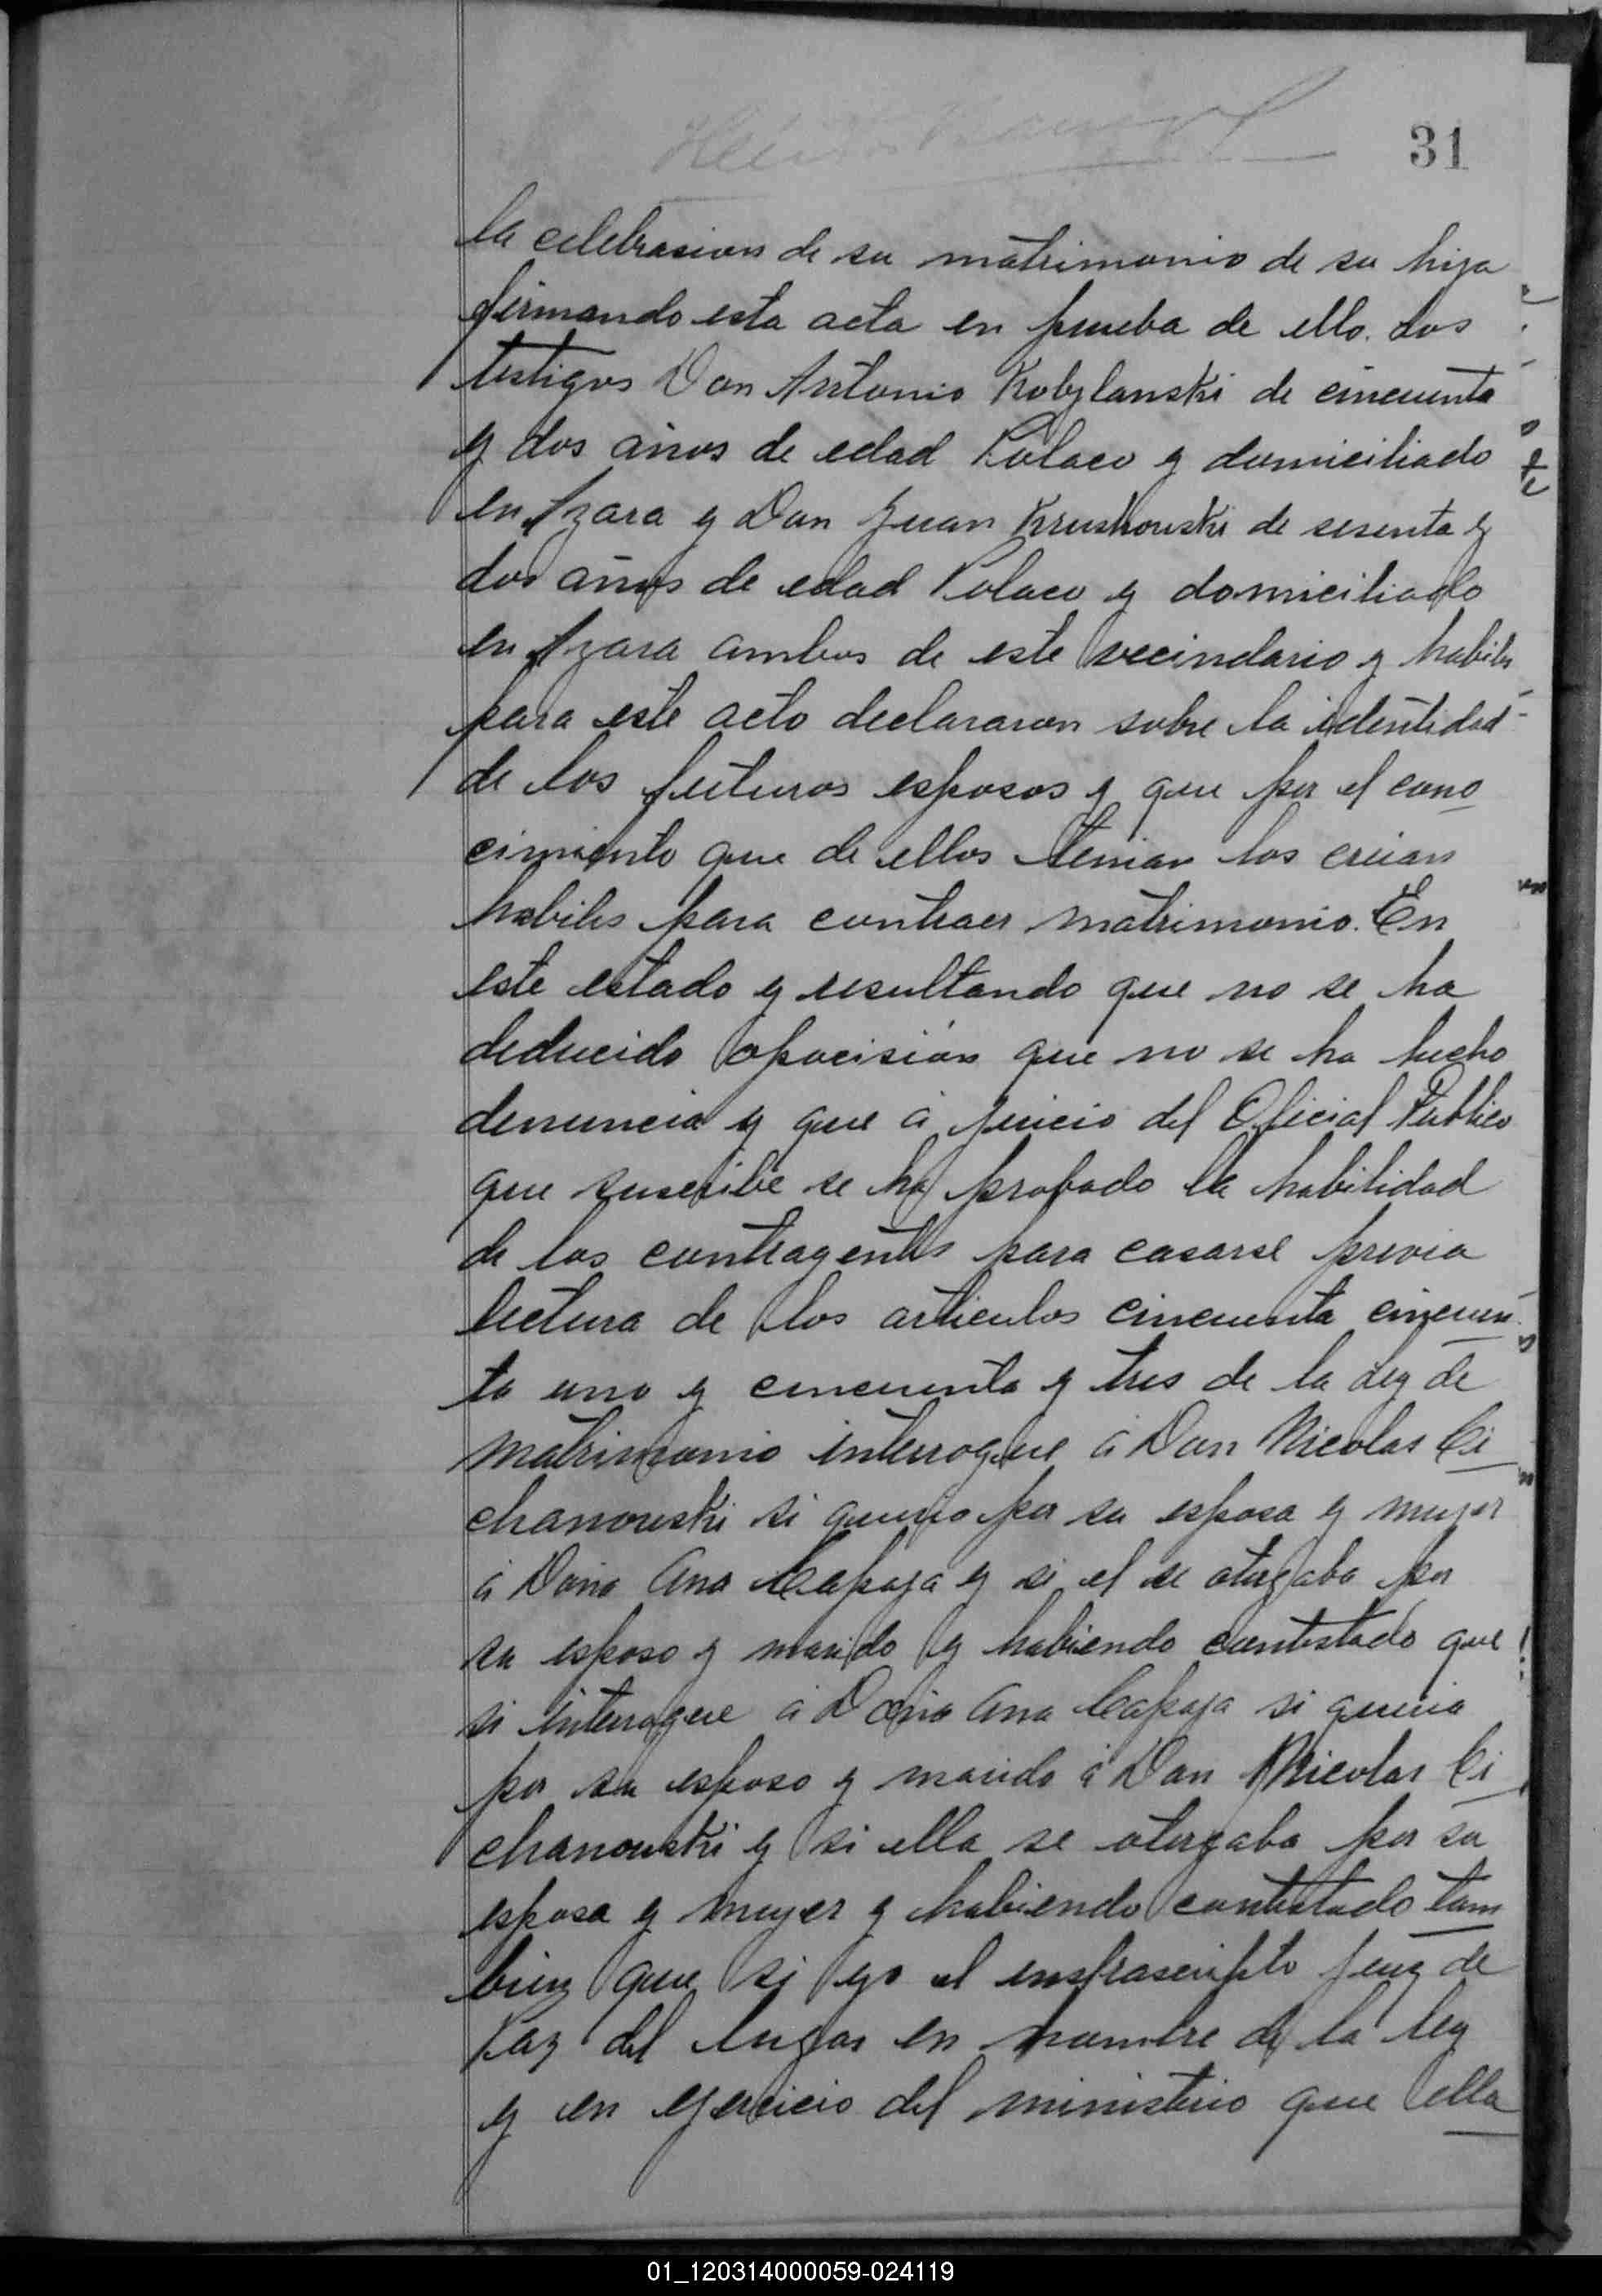 31
la celebrasion de su matrimonio de su hija
firmando esta acta en prueba de ello. Los
testigos Don Antonio Kobylanski de cincuenta
y dos años de edad Polaco y domiciliado
en Azara y Don Juan Krushowski de sesenta y
dos años de edad Polaco y domiciliado
en Azara ambos de este vecindario y habiles
para este acto declararon sobre la identidad
de los futuros esposos y que por el cono
cimiento que de ellos tenian los creian
habiles para contraer matrimonio. En
este estado y resultando que no se ha
deducido opocision que no se ha hecho
denuncia y que á juicio del Oficial Publico
que suscribe se ha probado la habilidad
de los contragentes para casarse previa
lectura de los articulos cincuenta cincuen
ta uno y cincuenta y tres de la Ley de
matrimonio interrogue á Don Nicolas Ci
chanowski si queria por su esposa y mujer
á Doña Ana Capaja y si el se otorgaba por
su esposo y marido y habiendo contestado que
si interrogue á Doña Ana Capaja si queria
por su esposo y marido á Don Nicolas Ci
chanowski y si ella se otorgaba por su
esposa y mujer y habiendo contestado tam
bien que si yo el insfrascripto Juez de
Paz del lugar en nombre de la ley
y en ejercicio del ministerio que ella
01_120314000059-024119